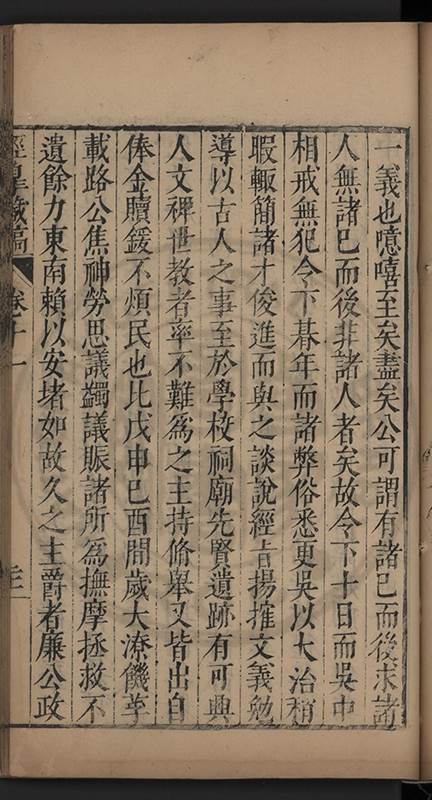 一義也噫嘻至矣盡矣公可謂有諸已而後求諸
人無諸已而後非諸人者矣故令下十日而吳中
相戒無犯令下朞年而諸弊俗悉更吳以大治稍
暇輙簡諸才俊進而與之談說經旨揚搉文義勉
導以古人之事至於學校祠廟先賢遺跡有可興
人文裨世教者率不難為之主持脩舉又皆出自
俸金贖鍰不煩民也比戊申已酉間歲大潦饑莩
載路公焦神勞思議蠲議賑諸所為撫摩拯救不
遺餘力東南賴以安堵如故久之主爵者廉公政
涇臯藏稿 卷十一